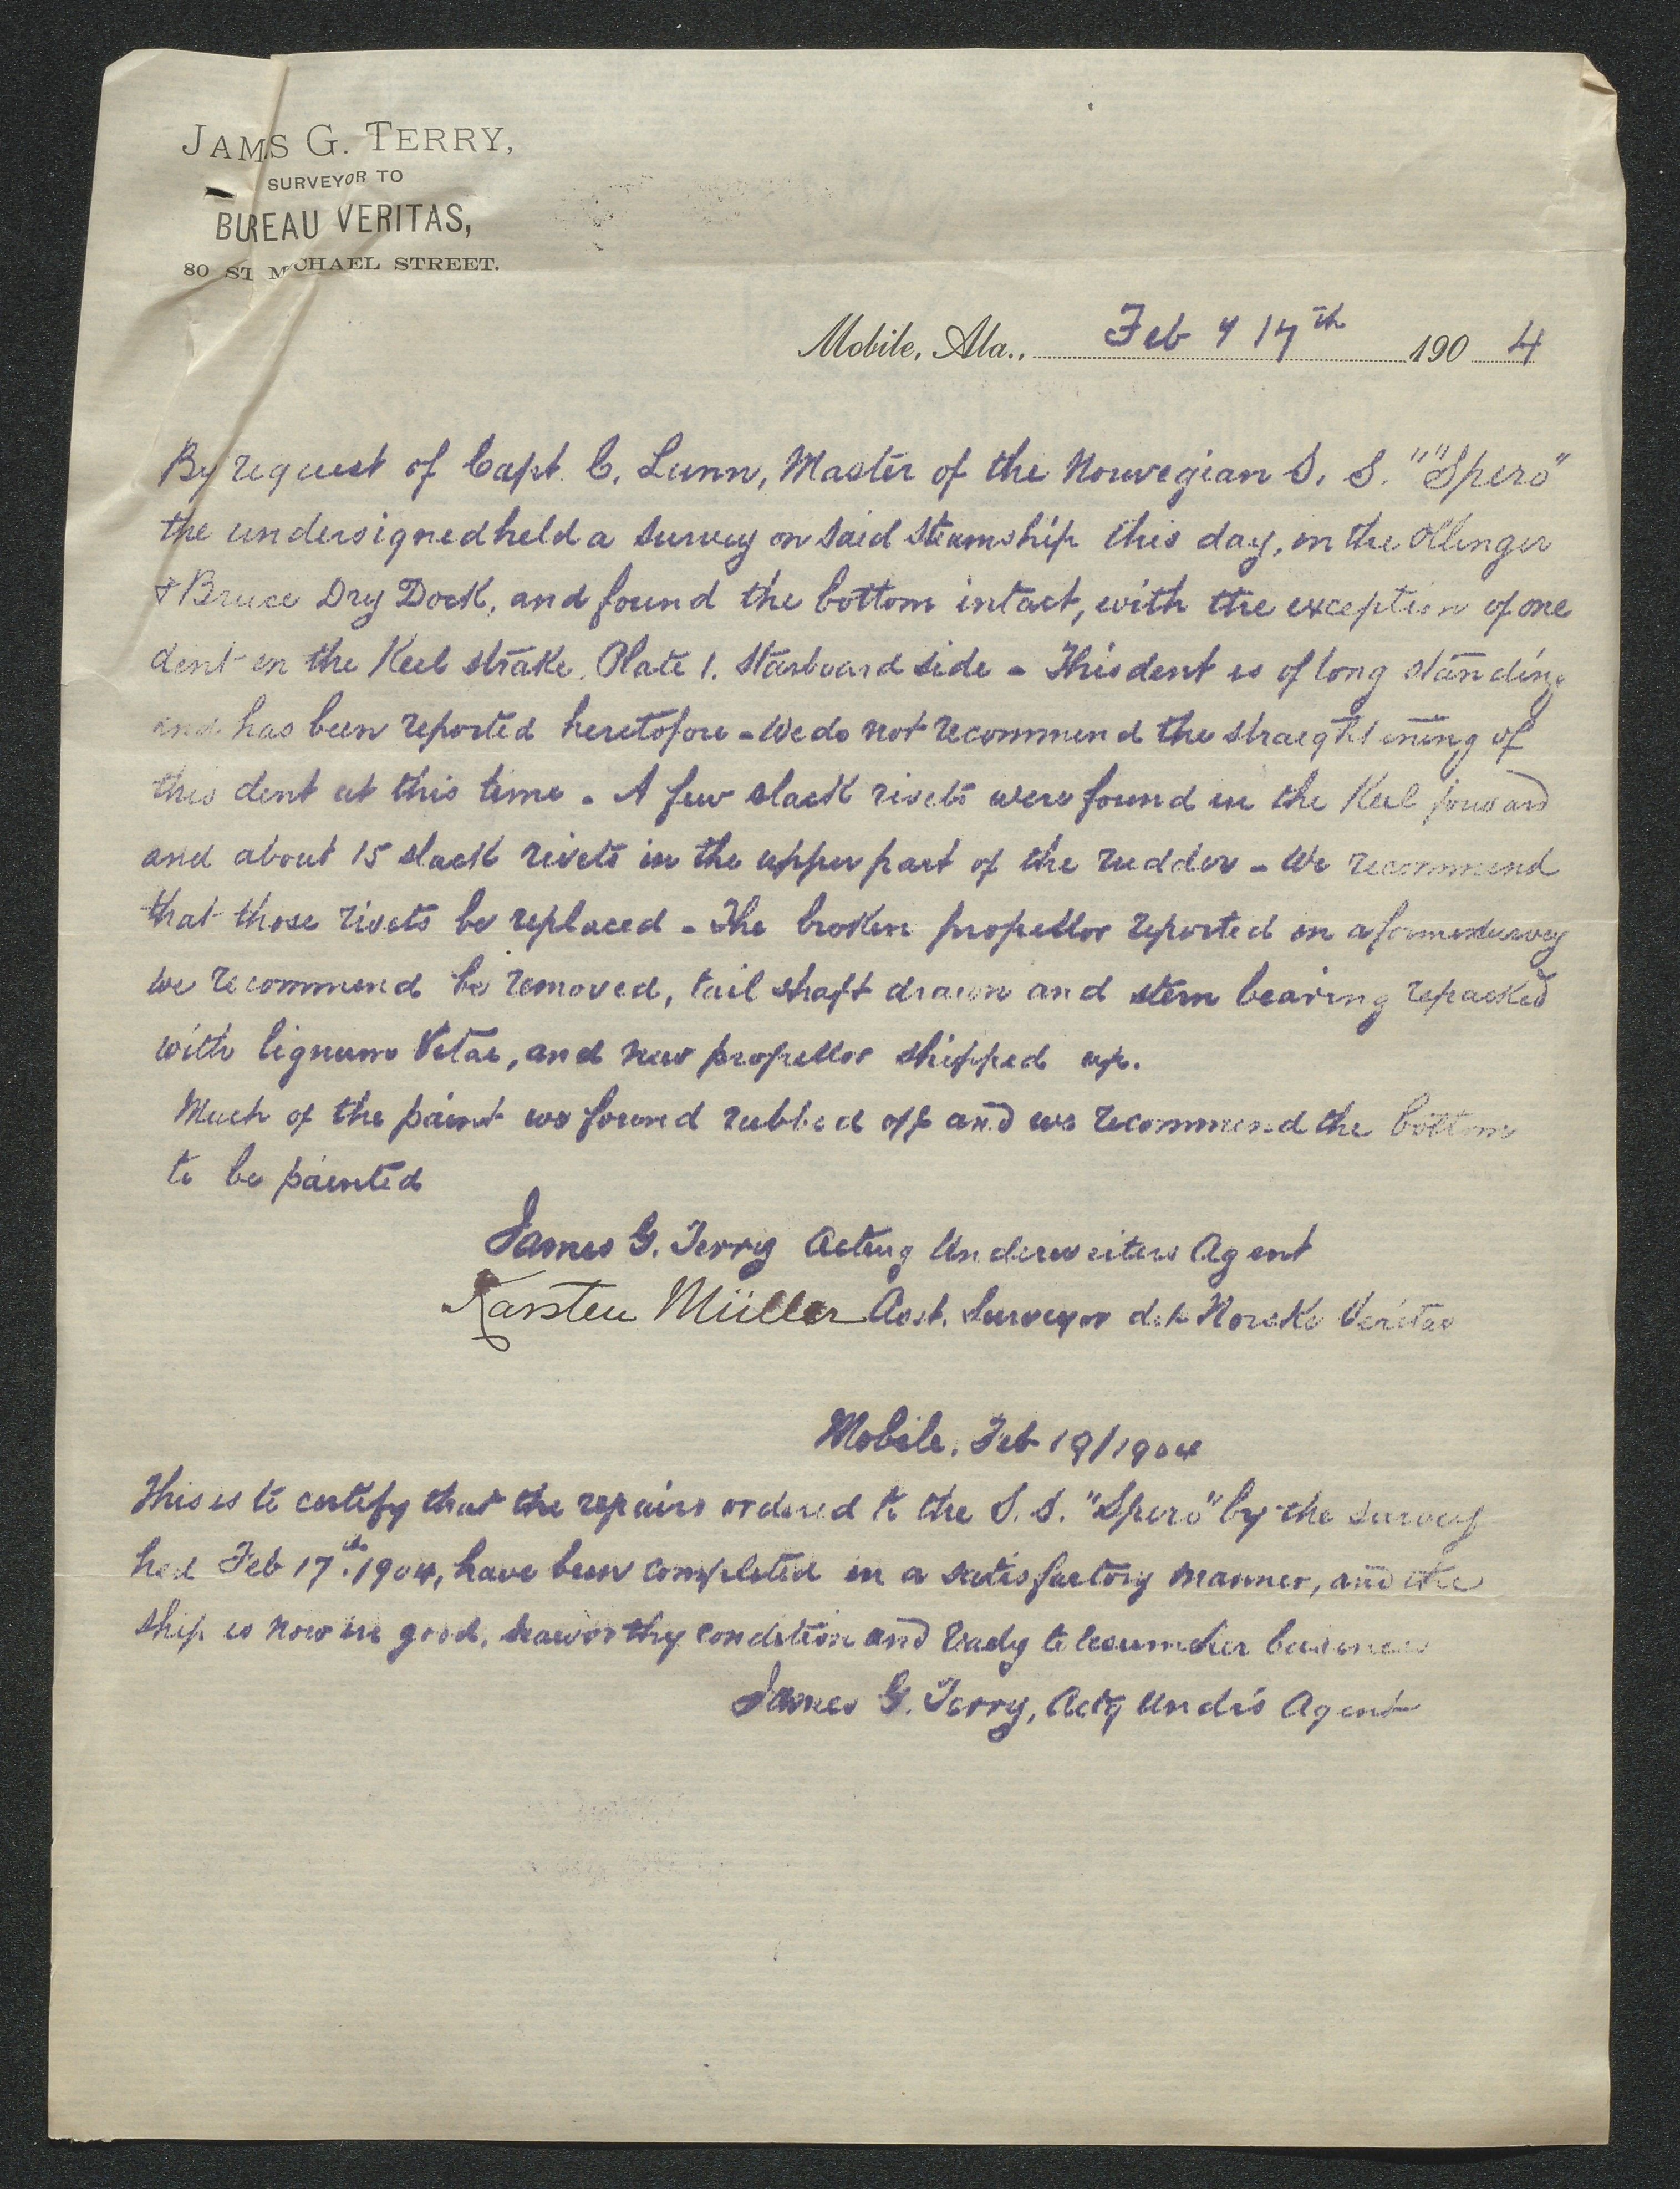 JAMS G. TERRY,
SURVEYOR TO
BUREAU VERITAS,
80 ST MICHAEL STREET.
Mobile, Ala., Feb 17th 1904
By request of Capt. C. Lunn, Master of the Norwegian S. S. ""Spero"
the undersigned held a survey on said steamship this day, in the Ollinger
& Bruce Dry Dock, and found the bottom intact, with the exception of one
dent in the Keel strake. Plate 1. Starboard side - This dent is of long standing
and has been reported heretofore - We do not recommend the straightening of
this dent at this time - A few slack rivets were found in the Keel forward
and about 15 slack rivets in the upper part of the rudder - We recommend
that those rivets be replaced - The broken propellor reported on a former survey
we recommend be removed, tail shaft drawn and stern bearing repacked
with lignum Vitae, and new propellor shipped up.
Much of the paint we found rubbed off and we recommend the bottom
to be painted
James G. Terry Acting Underwriters Agent
Karsten Müller Asst. Surveyor det Norske Veritas
Mobile, Feb 19/1904
This is to certify that the repairs ordered to the S. S. "Spero" by the survey
hed Feb 17th. 1904, have been completed in a satisfactory manner, and the
ship is now in good, seaworthy condition and ready to resume her business
James G. Terry, Actg Undrs Agent